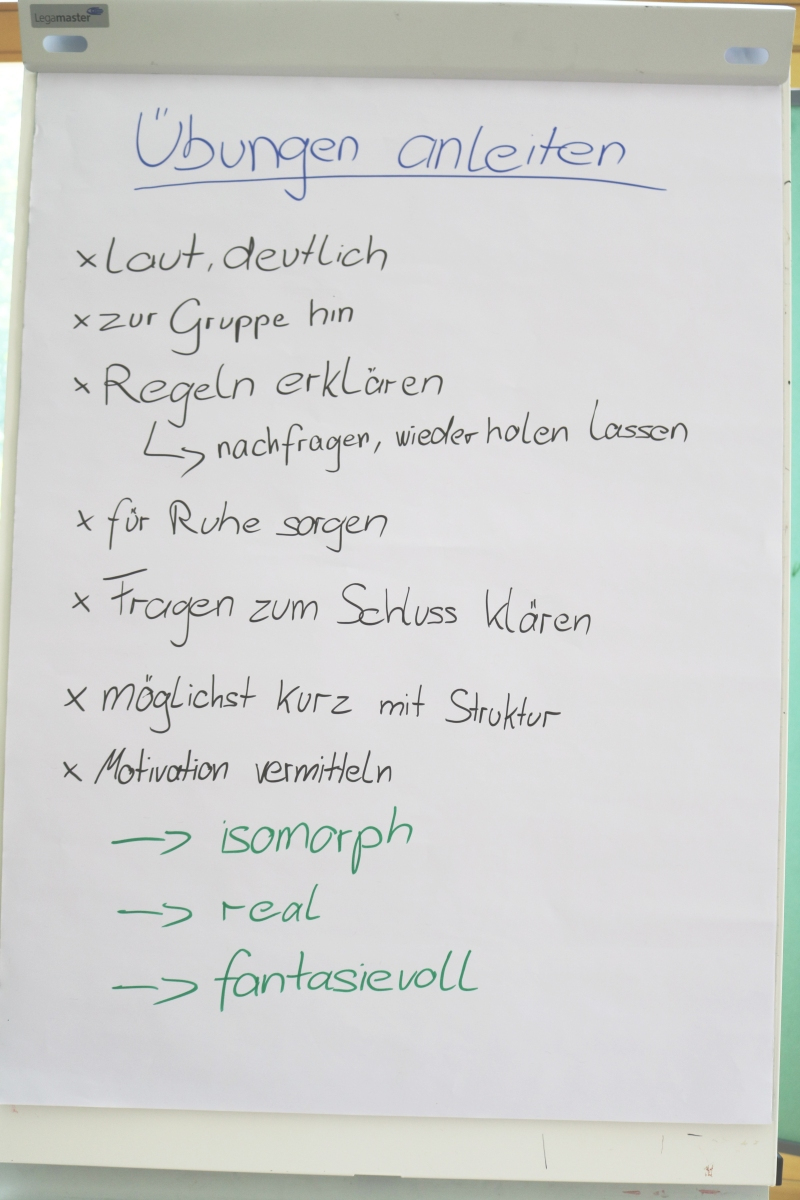 Legamaster
Übungen anleiten
x Laut, deutlich
x zur Gruppe hin
x Regeln erklären
↳ nachfragen, wiederholen lassen
x für Ruhe sorgen
x Fragen zum Schluss klären
x möglichst kurz mit Struktur
x Motivation vermitteln
→ isomorph
→ real
→ fantasievoll